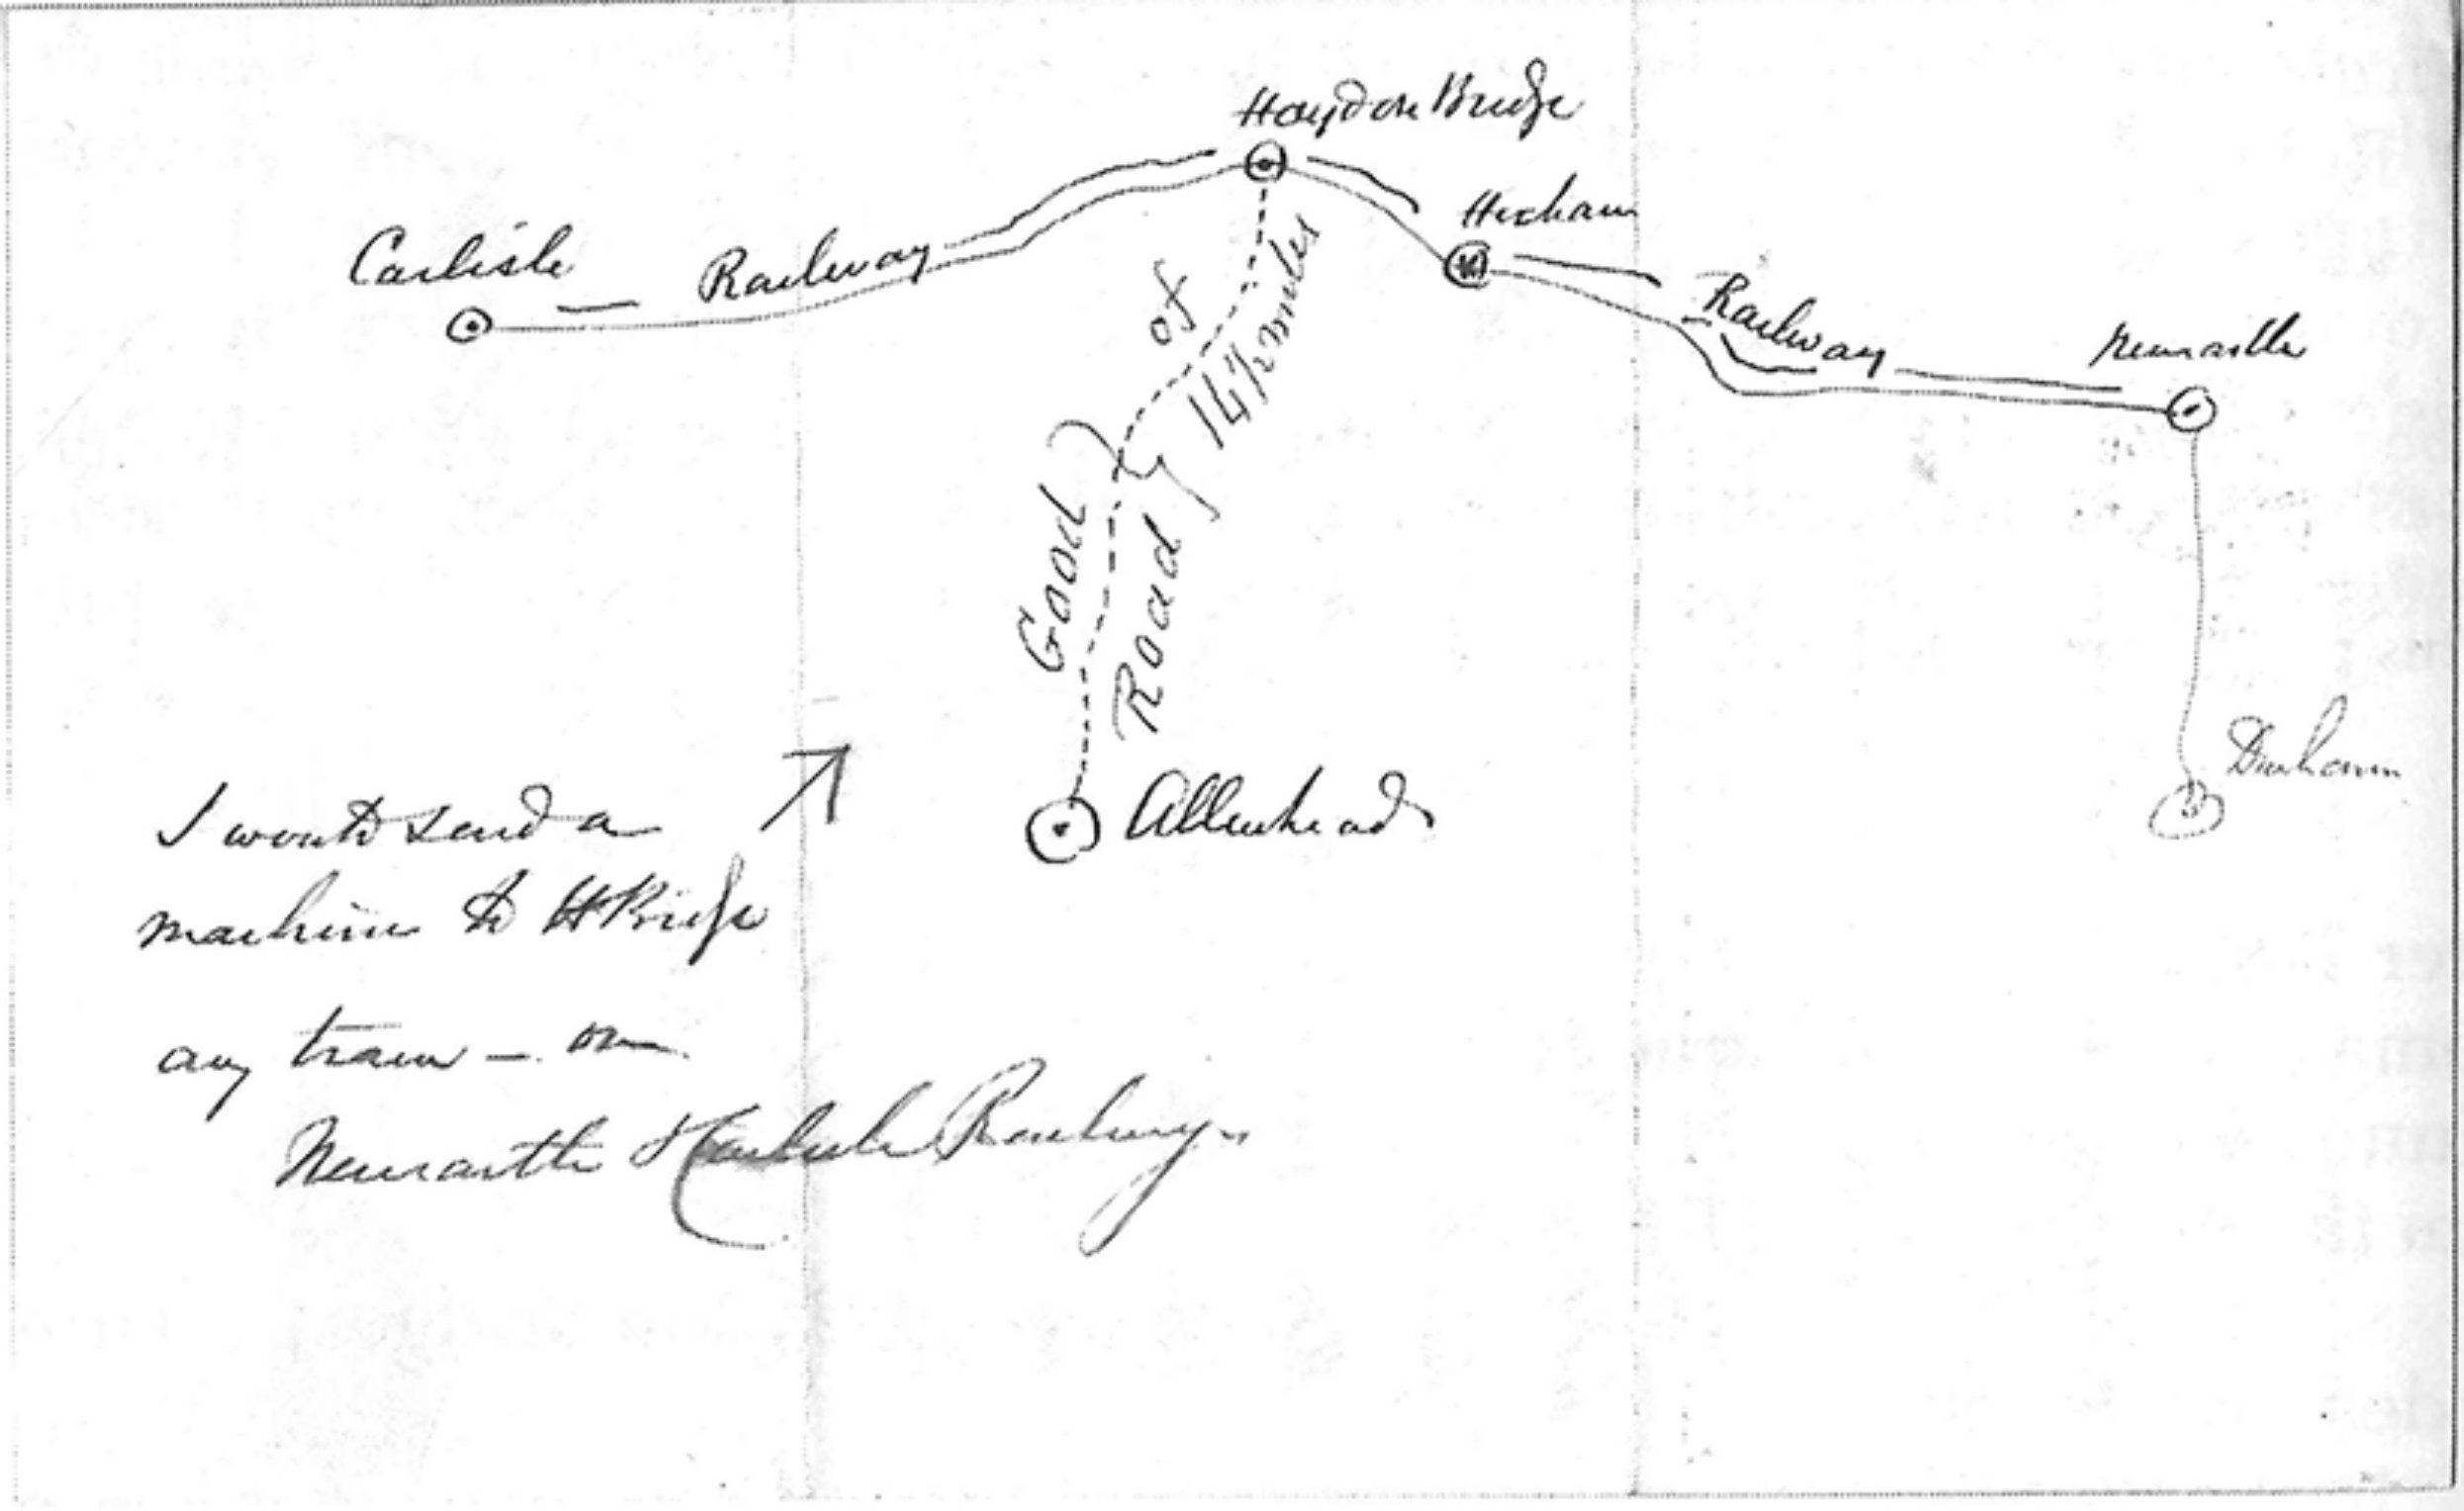 Haydon Bridge
Hexham
Carlisle
Railway
Railway
Newcastle
Good
Road
of
14½ miles
Durham
Allenheads
I would send a
machine to H Bridge
any train – on
Newcastle & Carlisle Railway.